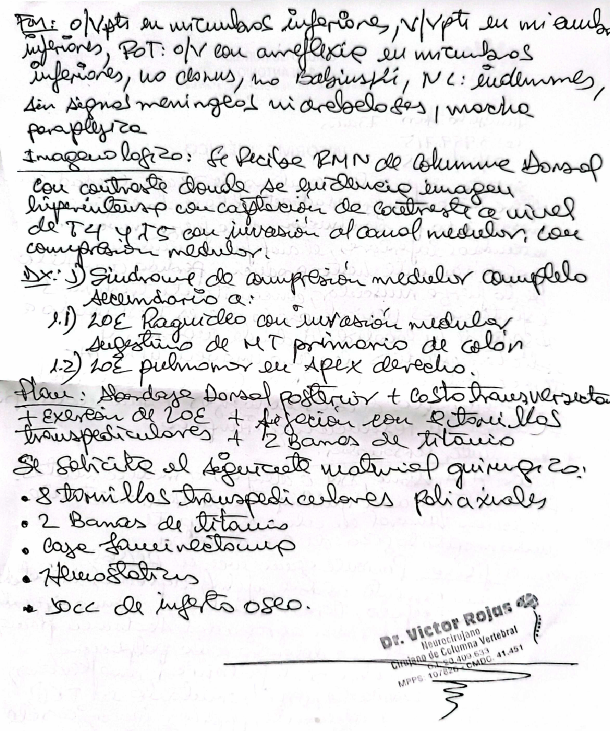 FM: 0/Vpts en miembros inferiores, V/Vpts en miemb
inferiores, ROT: 0/V con arreflexia en miembros
inferiores, no clonus, no Babinski, NC: indemnes,
sin signos meningeos ni cerebelosos, marcha
paraplejica
Imagenologico: Se Recibe RMN de Columna Dorsal
con contraste donde se evidencia imagen
hiperintensa con captación de contraste a nivel
de T4 y T5 con invasión al canal medular, con
compresión medular.
DX: 1) Sindrome de compresión medular completo
secundario a:
1.1) LOE Raquideo con invasión medular
sugestivo de MT primario de colón
1.2) LOE pulmonar en Apex derecho.
Plan: Abordaje Dorsal posterior + costotransversecto
+ Exeresis de LOE + fijación con 8 tornillos
transpediculares + 2 Barras de titanio
Se solicita el siguiente material quirurgico:
• 8 tornillos transpediculares poliaxiales
• 2 Barras de titanio
• Caja laminectomia
• Hemostaticos
• 10cc de injerto oseo.
Dr. Victor Rojas
Neurocirujano
Cirujano de Columna Vertebral
MPPS CMDC: 41.451